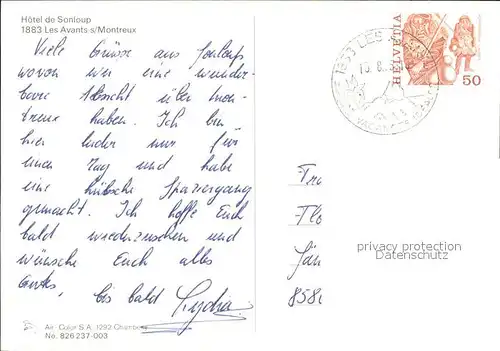 Hôtel de Sonloup
1883 Les Avants s/Montreux
Viele Grüsse aus Sonloup
wovon wir eine wunder-
bare Absicht über Mon-
treux haben. Ich bin
hier leider nur für
einen Tag und habe
eine hübsche Spaziergang
gemacht. Ich hoffe Euch
bald wiederzusehen und
wünsche Euch alles
Gute,
bis bald Lydia
Air-Color S.A. 1292 Chambésy
No. 826 237-003
1833 LES AVANTS
HELVETIA
50
Tro
Flo
Jan
858
privacy protection
Datenschutz